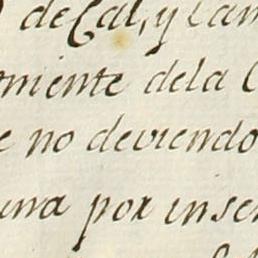 de Cal, y tam
mente dela C
e no deviendo
una por inser